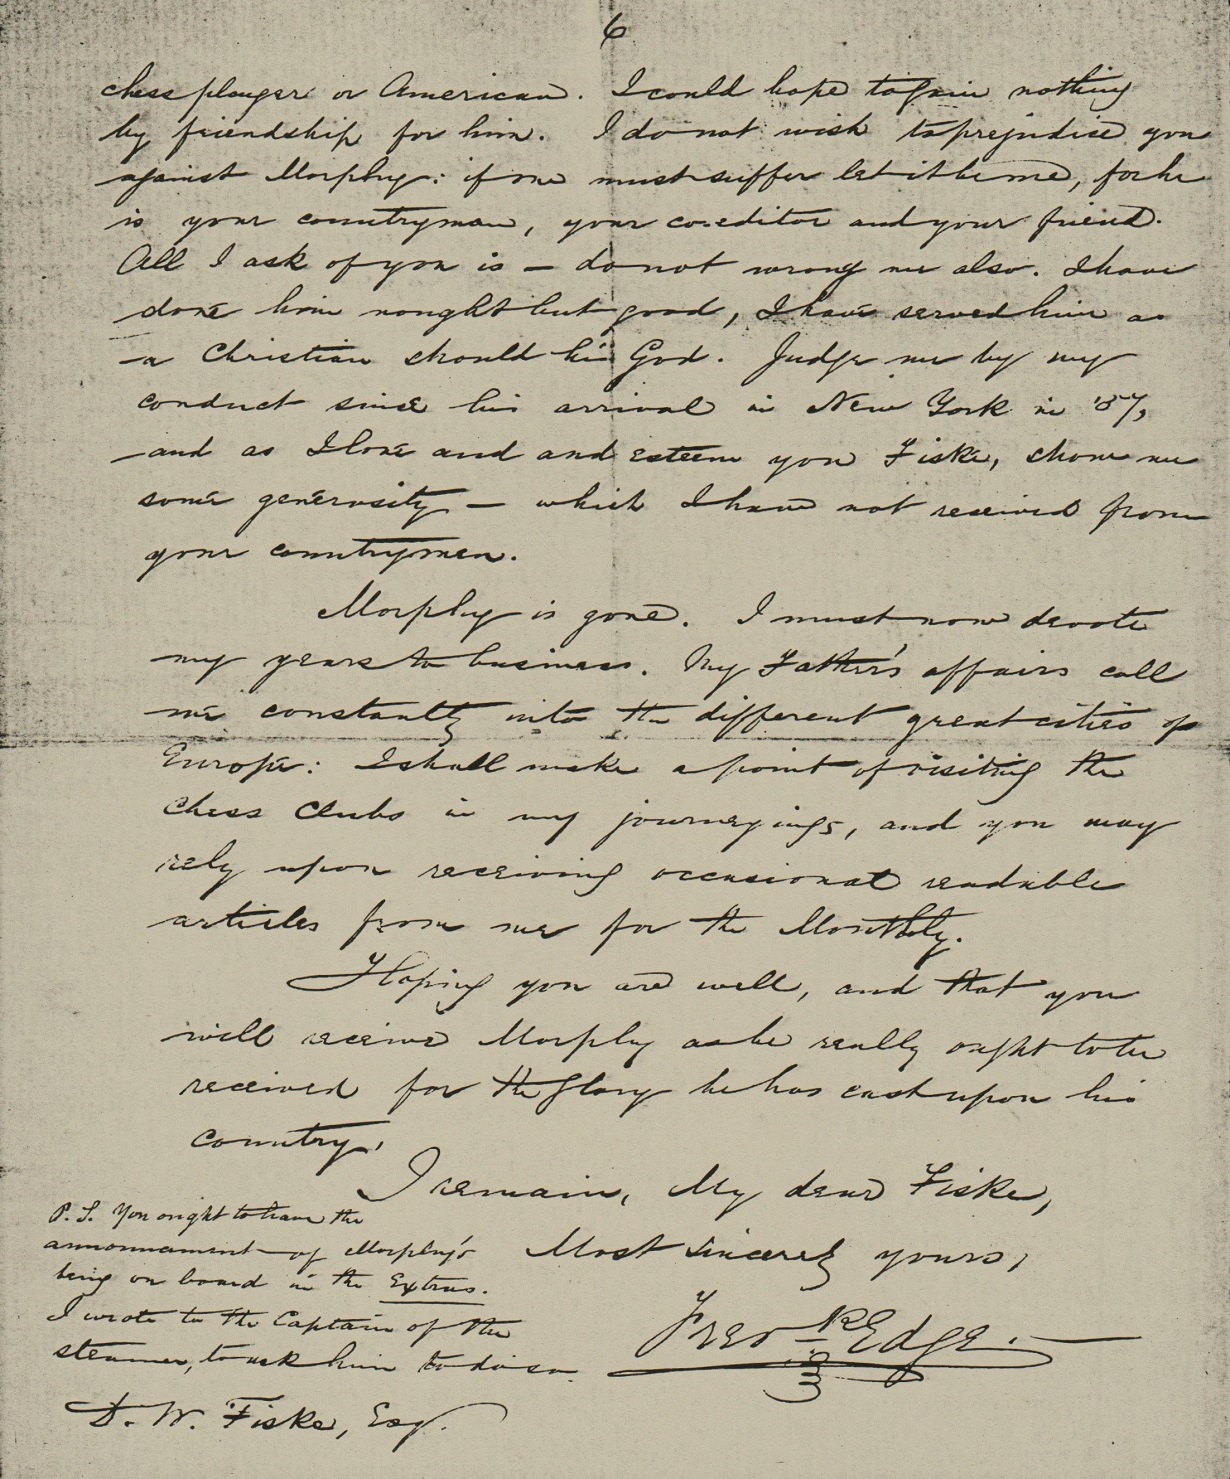 6
chess player or American. I could hope to gain nothing
by friendship for him. I do not wish to prejudice you
against Morphy: if one must suffer let it be me, for he
is your countryman, your co-editor and your friend.
All I ask of you is — do not wrong me also. I have
done him nought but good, I have served him as
a Christian should his God. Judge me by my
conduct since his arrival in New York in '57,
and as I love and and esteem you Fiske, show me
some generosity — which I have not received from
your countrymen.
Morphy is gone. I must now devote
my years to business. My Father's affairs call
me constantly into the different great cities of
Europe: I shall make a point of visiting the
Chess Clubs in my journeyings, and you may
rely upon receiving occasional readable
articles from me for the Monthly.
Hoping you are well, and that you
will receive Morphy as he really ought to be
received for the glory he has cast upon his
country,
I remain, My dear Fiske,
Most sincerely yours,
Fredk Edge.
P.S. You ought to have the
announcement of Morphy's
being on board in the Extras.
I wrote to the Captain of the
steamer, to ask him to do so.
D. W. Fiske, Esq.